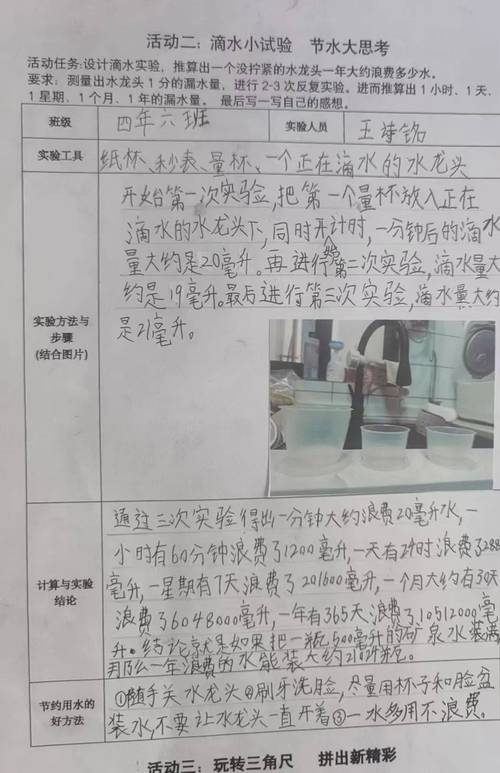 活动二：滴水小试验 节水大思考
活动任务:设计滴水实验，推算出一个没拧紧的水龙头一年大约浪费多少水。
要求：测量出水龙头1分的漏水量，进行2-3次反复实验。进而推算出1小时、1天、
1星期、1个月、1年的漏水量。 最后写一写自己的感想。
班级 四年六班 实验人员 王 铭
实验工具 纸杯、秒表、量杯、一个正在滴水的水龙头
实验方法与
步骤
(结合图片)
开始第一次实验,把第一个量杯放入正在
滴水的水龙头下,同时开始计时,一分钟后的滴水
量大约是20毫升。再进行第二次实验,滴水量大
约是19毫升。最后进行第三次实验,滴水量大约
是21毫升。
计算与实验
结论
通过三次实验得出一分钟大约浪费20毫升水,一
小时有60分钟浪费了1200毫升,一天有24时浪费了288
毫升,一星期有7天浪费了201600毫升,一个月大约有30天
浪费了6048000毫升,一年有365天浪费了10512000毫
升。结论就是如果把一瓶500毫升的矿泉水装满,
那么一年浪费的水能装大约21024瓶。
节约用水的
好方法
①随手关水龙头②刷牙洗脸,尽量用杯子和脸盆
装水,不要让水龙头一直开着③一水多用不浪费。
活动三：玩转三角尺 拼出新精彩